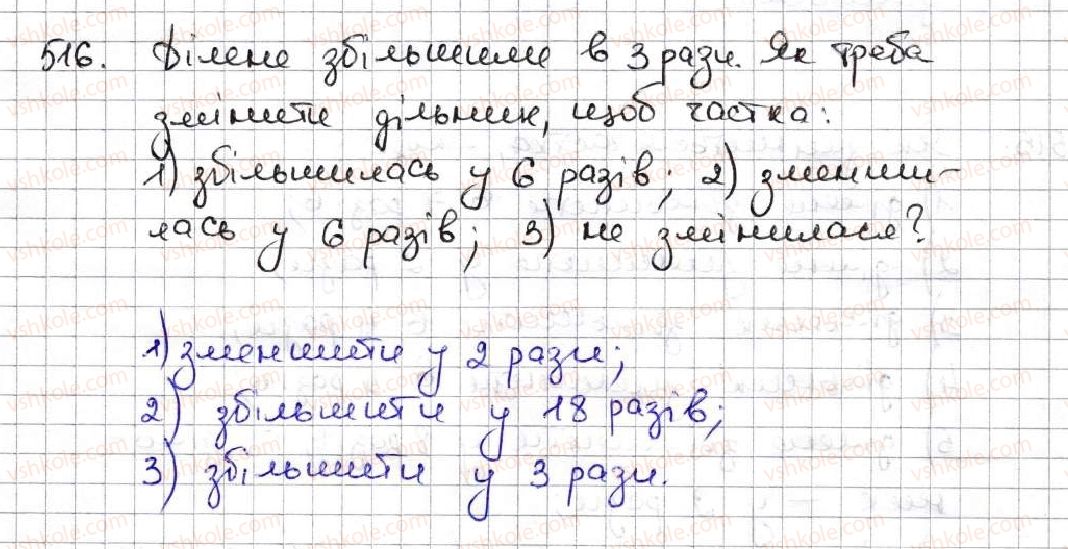 516. Ділене збільшили в 3 рази. Як треба
змінити дільник, щоб частка:
1) збільшилась у 6 разів; 2) зменши-
лась у 6 разів; 3) не змінилася?
1) зменшити у 2 рази;
2) збільшити у 18 разів;
3) збільшити у 3 рази.